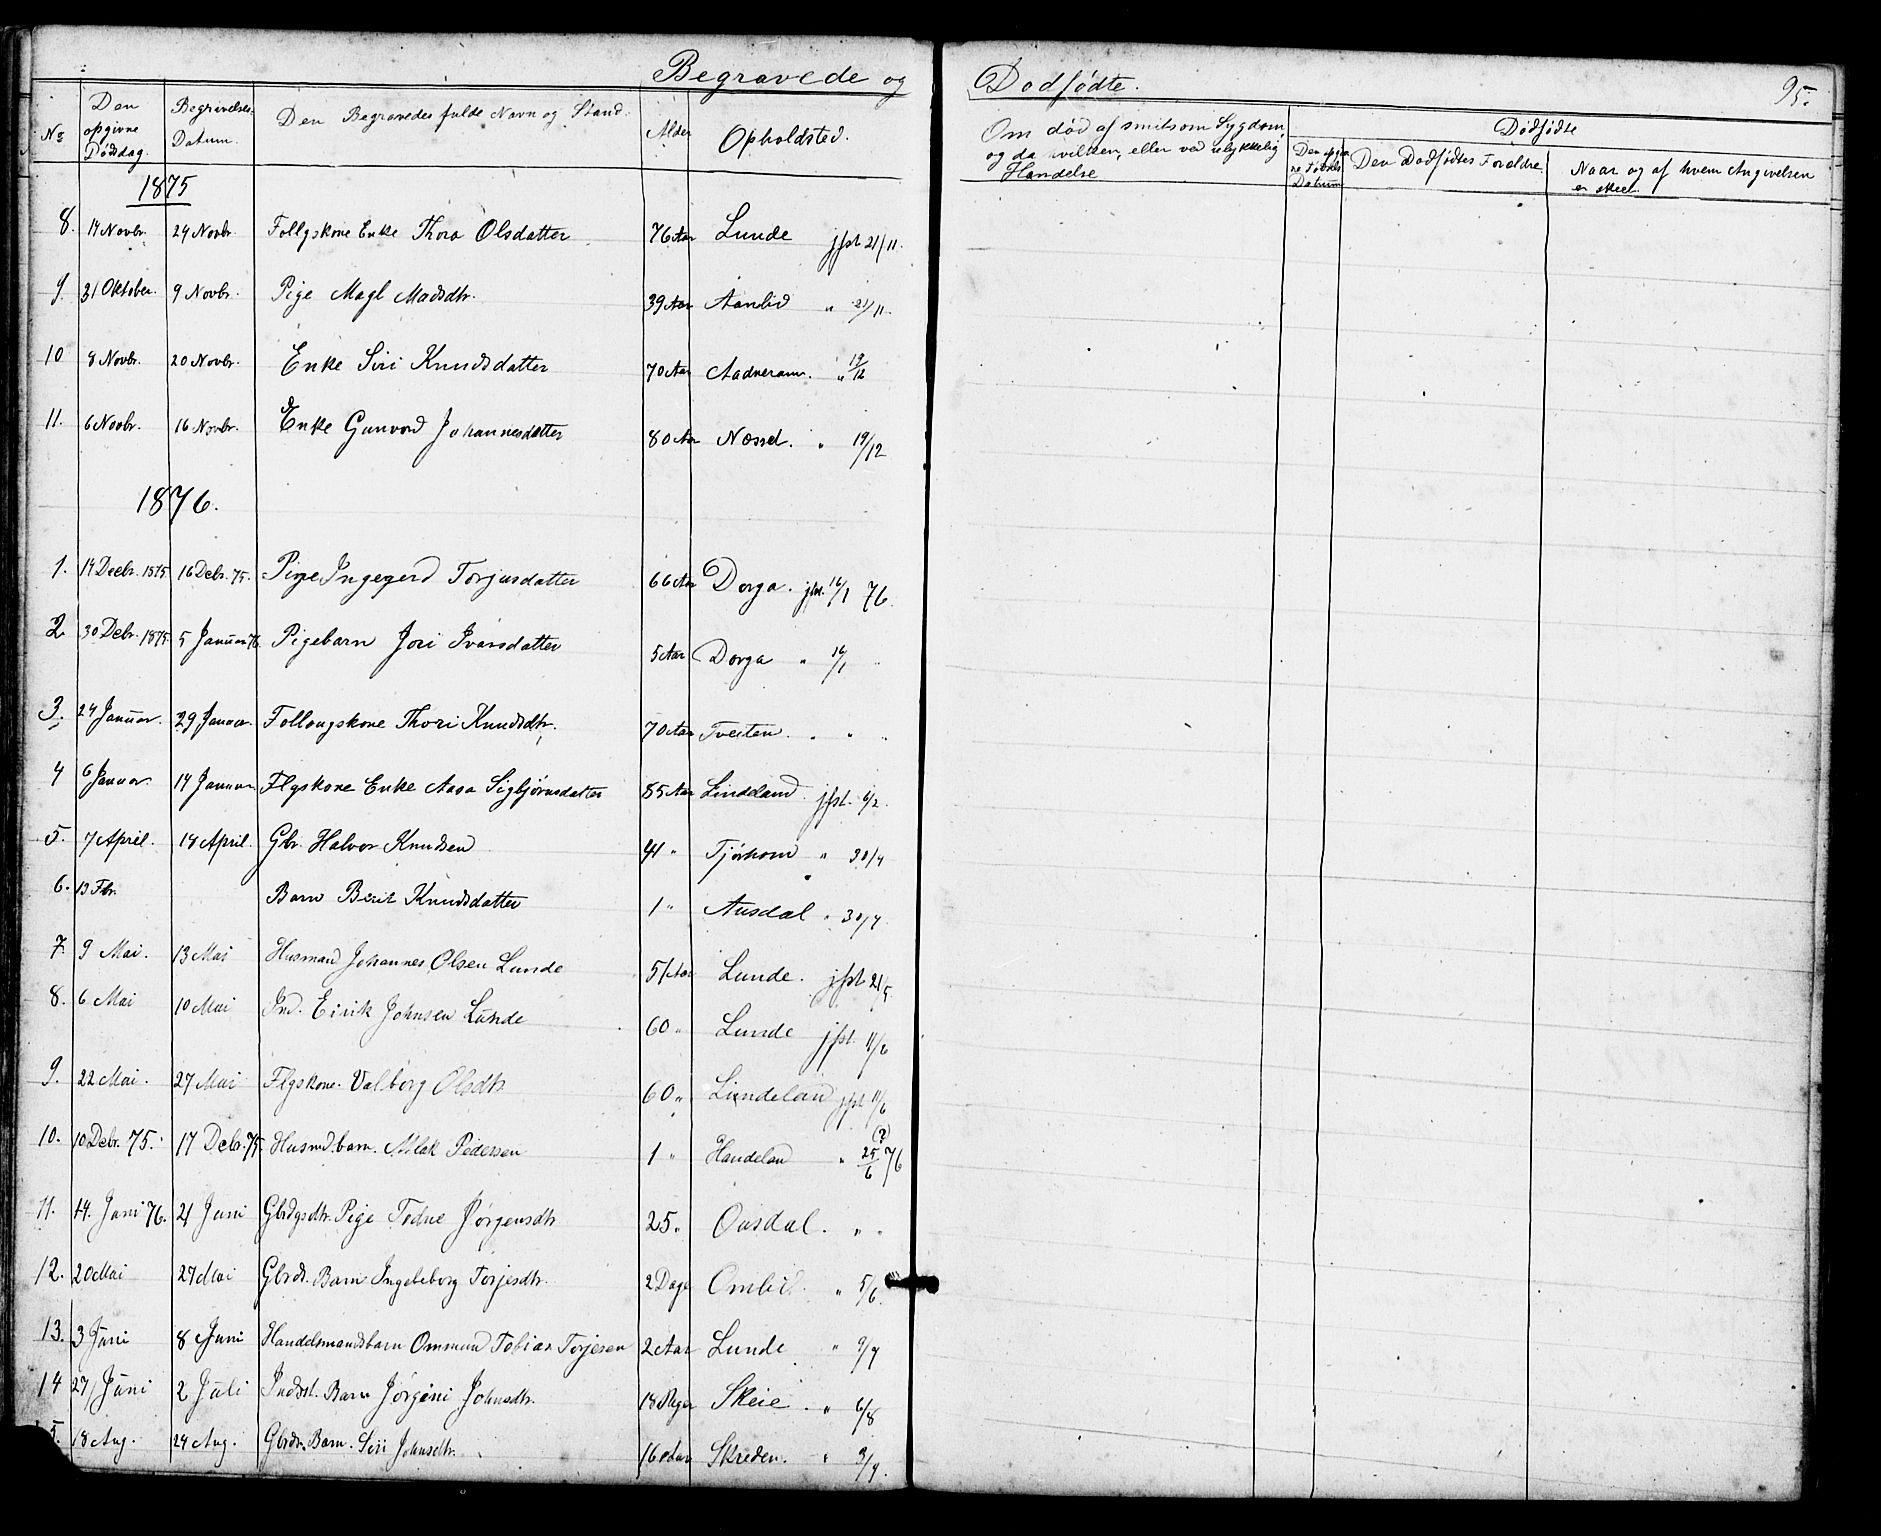 Begravede og Dødfødte. 95.
No Den opgivne Dødsdag. Begravelses Datum. Den Begravedes fulde Navn og Stand. Alder Opholdsted. Om død af smitsom Sygdom, og da hvilken, eller ved ulykkelig Hændelse Dødfødte
Den opgivne Fødsels Datum Den Dødfødtes Forældre. Naar og af hvem Angivelsen er skeet.
1875
8. 14 Novbr. 24 Novbr. Follgskone Enke Thora Olsdatter 76 Aar Lunde jfst 21/11.
9. 31 Oktober. 9 Novbr. Pige Magl Madsdtr. 39 Aar Aamlid " 21/11.
10 8 Novbr. 20 Novbr. Enke Siri Knudsdatter 70 Aar Aadneram. " 19/12
11. 6 Novbr. 16 Novbr. Enke Gunvord Johannesdatter 80 Aar Næsset. " 19/12
1876.
1. 14 Decbr. 1875 16 Debr. 75. Pige Ingegerd Torjusdatter 66 Aar Dorga. jfst. 16/1 76.
2 30 Debr. 1875 5 Januar 76. Pigebarn Jori Ivarsdatter 5 Aar Dorga " 16/1 "
3. 24 Januar. 29 Januar. Follaugskone Thori Knudsdtr. 70 Aar Tveiten. " " "
4 6 Januar. 14 Januar Flgskone Enke Aasa Sigbjørnsdatter 85 Aar Lindeland. jfst. 6/2.
5. 7 April. 14 April. Gbr. Halvor Knudsen 41 " Tjørhom " 30/4
6. 13 Fbr. Barn Berit Knudsdatter 1 " Ausdal " 30/4.
7. 9 Mai. 13 Mai Husmand Johannes Olsen Lunde 51 Aar Lunde. jfst 21/5.
8. 6 Mai 10 Mai Ind. Eirik Johnsen Lunde 60 " Lunde jfst. 11/6
9. 22 Mai. 27 Mai Flgskone. Valborg Olsdtr 60 " Lindeland jfst 11/6
10. 10 Debr. 75. 17 Debr. 75. Husmd.barn. Mlak Pedersen 1 " Haudeland " 25/6 (?) 76
11. 14. Juni 76. 21 Juni Gbrdgsdtr. Pige Todne Jørgensdtr 25 " Ousdal. " "
12. 20 Mai 27 Mai Gbrds. Barn Ingebborg Torjesdtr. 2 Dage Omlid. " 5/6.
13. 3 Juni 8 Juni Handelsmandsbarn Ommund Tobias Torjesen 2 Aar Lunde " 9/7
14 27 Juni 2 Juli Indst. Barn Jørgine Johnsdtr. 18 Dage Skeie. " 6/8
5. 18 Aug. 24 Aug. Gbrdr. Barn. Siri Johnsdtr. 16 Aar Skreden. " 3/9.